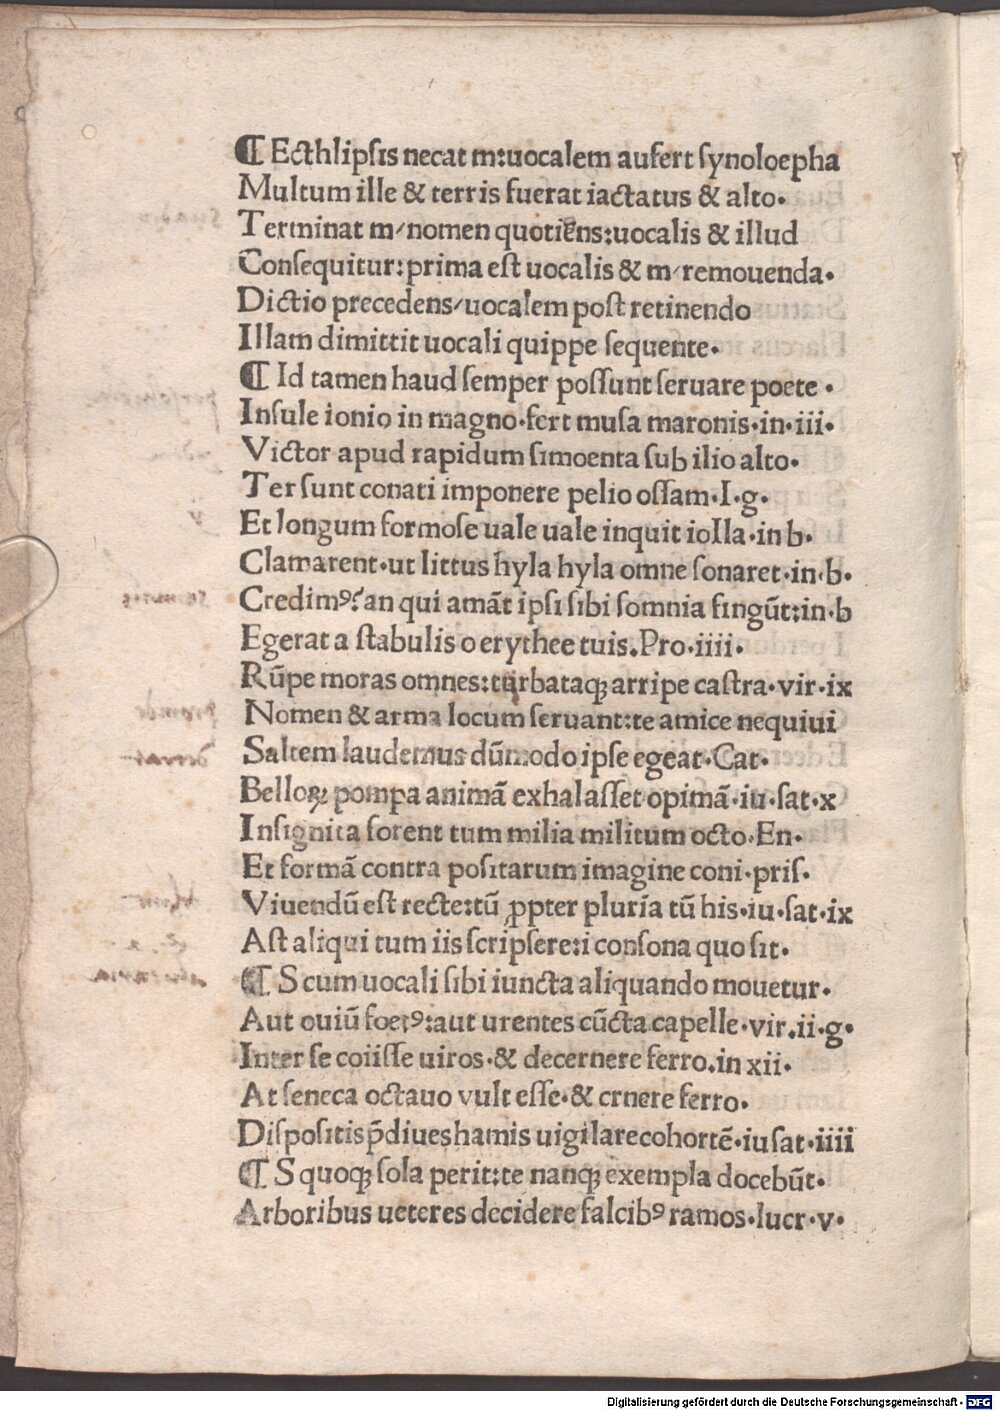 ¶ Ecthlipſis necat m:uocalem aufert ſynoloepha
Multum ille & terris fuerat iactatus & alto.
Terminat m/nomen quotiens:uocalis & illud
Conſequitur:prima eſt uocalis & m/remouenda.
Dictio precedens/uocalem poſt retinendo
Illam dimittit uocali quippe ſequente.
¶ Id tamen haud ſemper poſſunt ſeruare poete.
Inſule ionio in magno.fert muſa maronis.in.iii.
Victor apud rapidum ſimoenta ſub ilio alto.
Ter ſunt conati imponere pelio oſſam.I.g.
Et longum formoſe uale uale inquit iolla.in b.
Clamarent.ut littus hyla hyla omne ſonaret.in.b.
Credimꝰ?an qui amāt ipſi ſibi ſomnia fingūt:in.b
Egerat a ſtabulis o erythee tuis.Pro.iiii.
Rūpe moras omnes:turbataqꝫ arripe caſtra.vir.ix
Nomen & arma locum ſeruant:te amice nequiui
Saltem laudemus dūmodo ipſe egeat.Cat.
Belloꝝ pompa animā exhalaſſet opimā.iu.ſat.x
Inſignita forent tum milia militum octo.En.
Et formā contra poſitarum imagine coni.priſ.
Viuendū eſt recte:tū ꝓpter pluria tū his.iu.ſat.ix
Aſt aliqui tum iis ſcripſere:i conſona quo ſit.
¶ S cum uocali ſibi iuncta aliquando mouetur.
Aut ouiū foetꝰ:aut urentes cūcta capelle.vir.ii.g.
Inter ſe coiiſſe uiros.& decernere ferro.in xii.
At ſeneca octauo vult eſſe.& crnere ferro.
Diſpoſitis p̄diues hamis uigilare cohortē.iu ſat.iiii
¶ S quoqꝫ ſola perit:te nanqꝫ exempla docebūt.
Arboribus ueteres decidere falcibꝰ ramos.lucr.v.
Digitalisierung gefördert durch die Deutsche Forschungsgemeinschaft - DFG